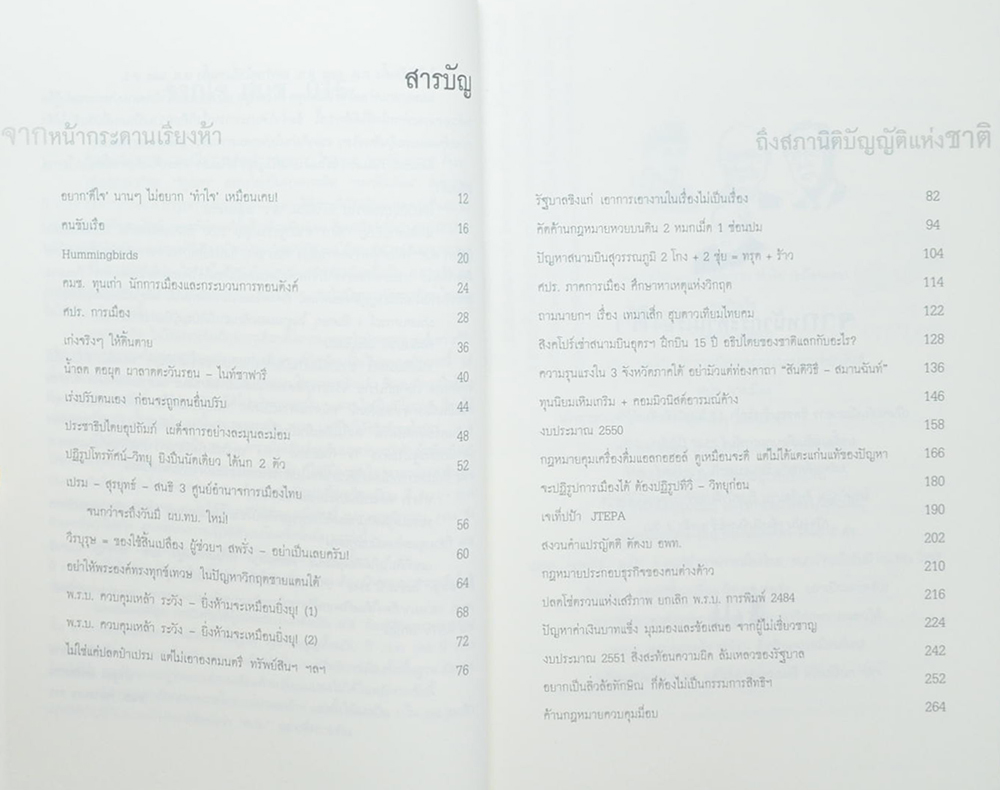 สารบัญ
จากหน้ากระดานเรียงห้า
อยาก‘ดีใจ’ นานๆ ไม่อยาก ‘ทำใจ’ เหมือนเคย! 12
คนขับเรือ 16
Hummingbirds 20
คมช. ทุนเก่า นักการเมืองและกระบวนการทอนตังค์ 24
ศปร. การเมือง 28
เก่งจริงๆ ให้ดิ้นตาย 36
น้ำลด ตอผุด ผาลาดตะวันรอน – ไนท์ซาฟารี 40
เร่งปรับตนเอง ก่อนจะถูกคนอื่นปรับ 44
ประชาธิปไตยอุปถัมภ์ เผด็จการอย่างละมุนละม่อม 48
ปฏิรูปโทรทัศน์-วิทยุ ยิงปืนนัดเดียว ได้นก 2 ตัว 52
เปรม – สุรยุทธ์ – สนธิ 3 ศูนย์อำนาจการเมืองไทย
จนกว่าจะถึงวันมี ผบ.ทบ. ใหม่! 56
วีรบุรุษ = ของใช้สิ้นเปลือง ผู้ช่วยฯ สพรั่ง – อย่าเป็นเลยครับ! 60
อย่าให้พระองค์ทรงทุกข์เทวษ ในปัญหาวิกฤตชายแดนใต้ 64
พ.ร.บ. ควบคุมเหล้า ระวัง – ยิ่งห้ามจะเหมือนยิ่งยุ! (1) 68
พ.ร.บ. ควบคุมเหล้า ระวัง – ยิ่งห้ามจะเหมือนยิ่งยุ! (2) 72
ไม่ใช่แค่ปลดป๋าเปรม แต่ไม่เอาองคมนตรี ทรัพย์สินฯ ฯลฯ 76
ถึงสภานิติบัญญัติแห่งชาติ
รัฐบาลขิงแก่ เอาการเอางานในเรื่องไม่เป็นเรื่อง 82
คัดค้านกฎหมายหวยบนดิน 2 หมกเม็ด 1 ซ่อนปม 94
ปัญหาสนามบินสุวรรณภูมิ 2 โกง + 2 ซุ่ย = ทรุด + ร้าว 104
ศปร. ภาคการเมือง ศึกษาหาเหตุแห่งวิกฤต 114
ถามนายกฯ เรื่อง เทมาเส็ก ฮุบดาวเทียมไทยคม 122
สิงคโปร์เช่าสนามบินอุดรฯ ฝึกบิน 15 ปี อธิปไตยของชาติแลกกับอะไร? 128
ความรุนแรงใน 3 จังหวัดภาคใต้ อย่ามัวแต่ท่องคาถา “สันติวิธี – สมานฉันท์” 136
ทุนนิยมเหิมเกริม + คอมมิวนิสต์อารมณ์ค้าง 146
งบประมาณ 2550 158
กฎหมายคุมเครื่องดื่มแอลกอฮอล์ ดูเหมือนจะดี แต่ไม่ได้แตะแก่นแท้ของปัญหา 166
จะปฏิรูปการเมืองได้ ต้องปฏิรูปทีวี – วิทยุก่อน 180
เจเท็ปป้า JTEPA 190
สงวนคำแปรญัตติ ตัดงบ อพท. 202
กฎหมายประกอบธุรกิจของคนต่างด้าว 210
ปลดโซ่ตรวนแห่งเสรีภาพ ยกเลิก พ.ร.บ. การพิมพ์ 2484 216
ปัญหาค่าเงินบาทแข็ง มุมมองและข้อเสนอ จากผู้ไม่เชี่ยวชาญ 224
งบประมาณ 2551 สิ่งสะท้อนความผิด ล้มเหลวของรัฐบาล 242
อยากเป็นสิ่วล้อทักษิณ ก็ต้องไม่เป็นกรรมการสิทธิฯ 252
ค้านกฎหมายควบคุมม็อบ 264